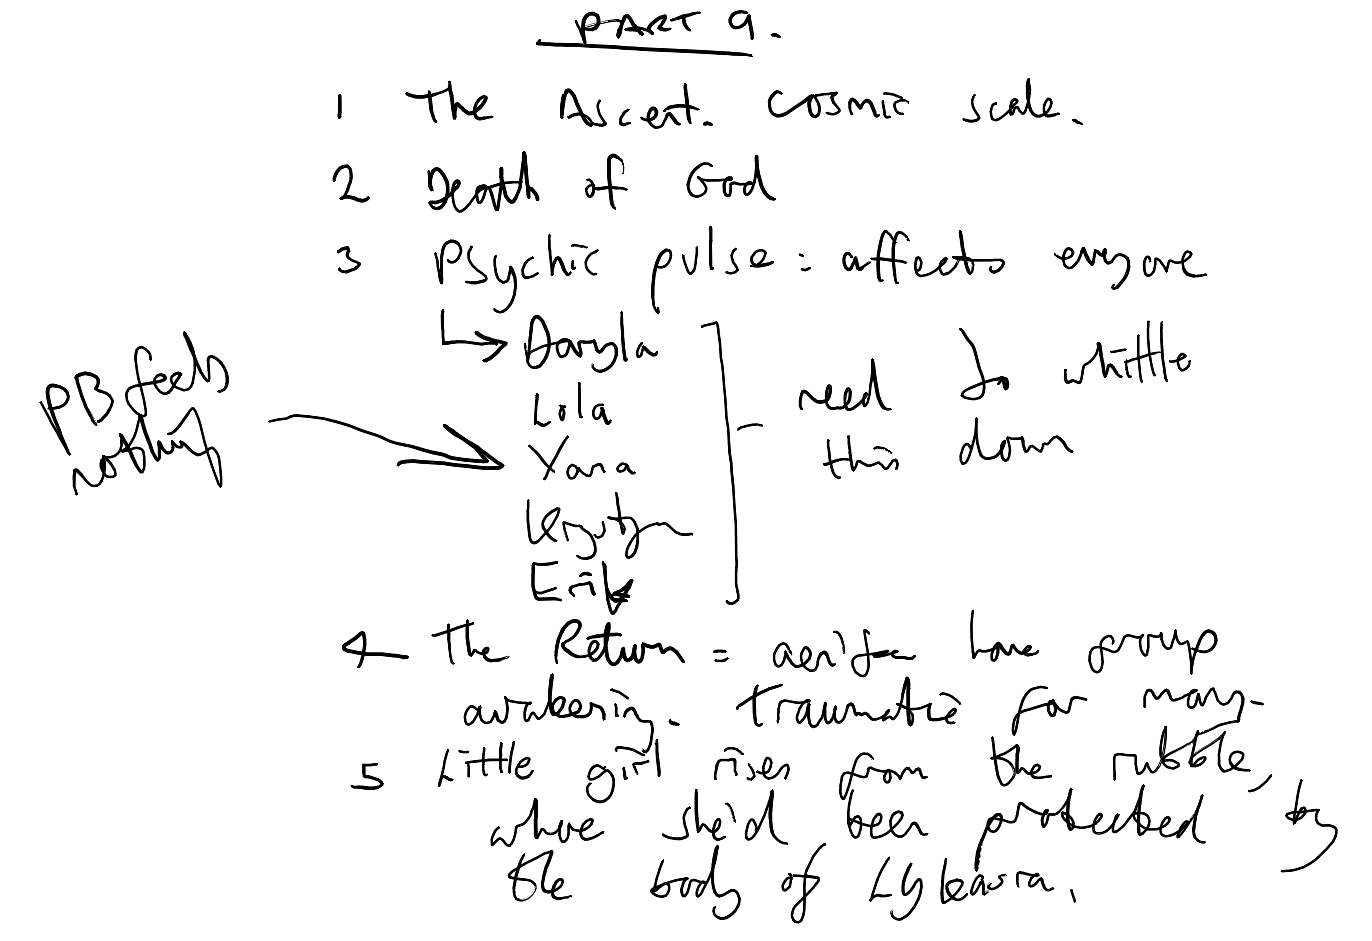 PART 9.
1 The Ascent. Cosmic scale.
2 Death of God
3 Psychic pulse: affects everyone
Daryla
Lola
Yana
Erik
need to whittle
this down
PB feels
nothing
4 The Return = have group
awakening. Traumatic for many.
5 Little girl rises from the rubble,
where she'd been protected by
the body of Lybeasra.